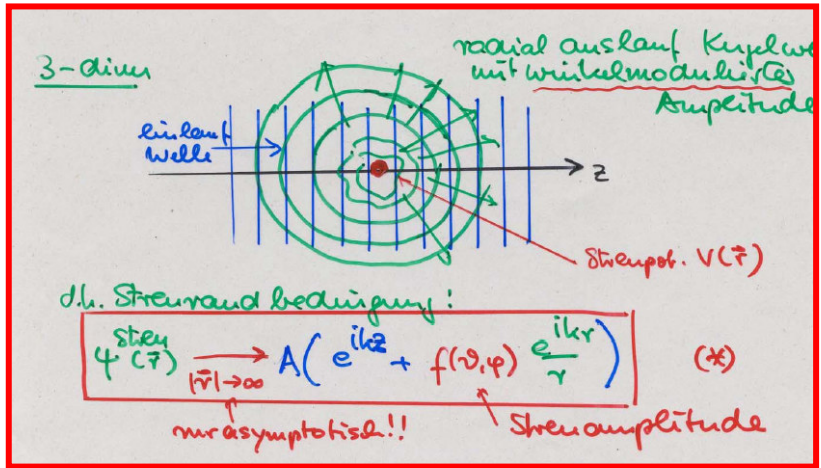 3-dim
radial auslauf Kugelwe
mit winkelmodulierter
Amplitude
einlauf
Welle
z
Streupot. V(r⃗)
d.h. Streurandbedingung:
ψ^Streu(r⃗) → |r⃗|→∞ A( e^{ikz} + f(ϑ,φ) e^{ikr}/r ) (*)
nur asymptotisch!! Streuamplitude